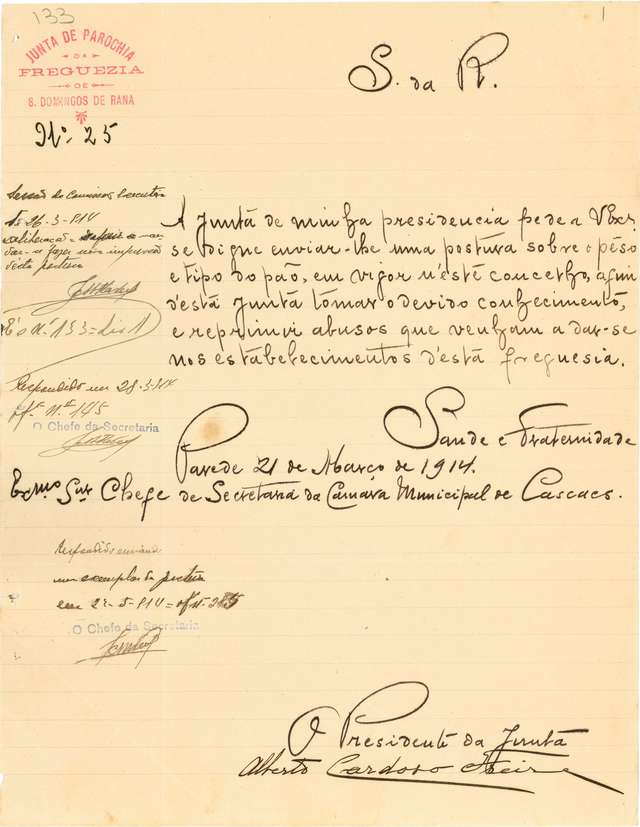 133
JUNTA DE PAROCHIA
DA
FREGUEZIA
DE
S. DOMINGOS DE RANA
Nº 25
S. da R.
Sessão da Comissão Executiva
de 26-3-914
deliberação =
fazer
desta postura
É o nº 133 =
Respondido em 28-3-914
of. n.º 145
O Chefe da Secretaria
A Junta de minha presidencia pede a V.Exª
se digne enviar-lhe uma postura sobre o pêso
e tipo do pão, em vigor n'éste concelho, afim
d'ésta Junta tomar o devido conhecimento,
e reprimir abusos que venham a dar-se
nos estabelecimentos d'ésta freguesia.
Saude e Fraternidade
Parede 21 de Março de 1914.
Exmo Snr Chefe de Secretaria da Camara Municipal de Cascaes.
Respondido enviando
um exemplar da postura
O Chefe da Secretaria
O Presidente da Junta
Alberto Cardoso Freire